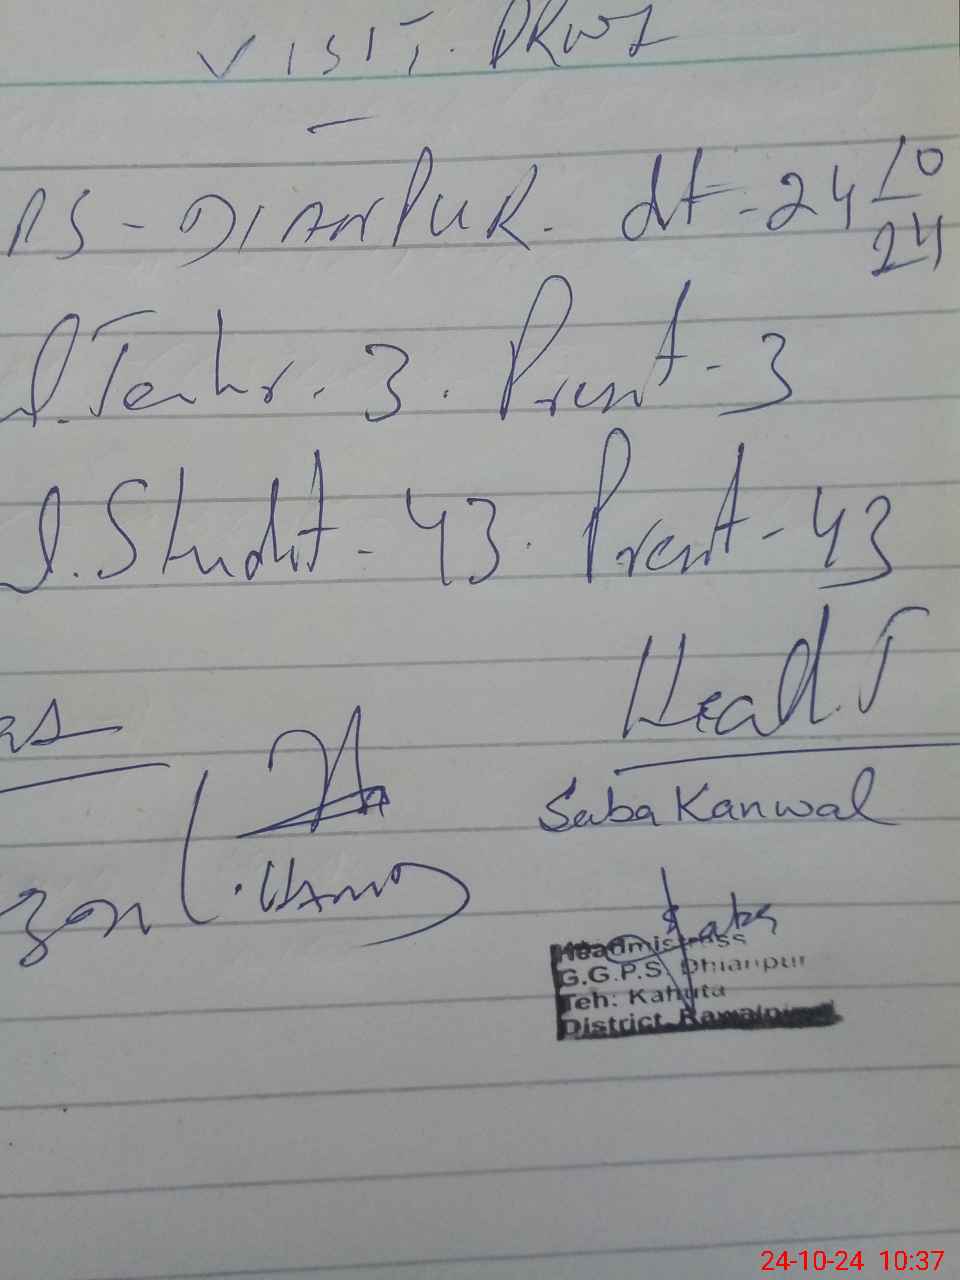 VISIT.
PS - DIANPUR. dt - 24 10/24
T. Teacher - 3. Present - 3
T. Student - 43. Present - 43
Head. T
Saba Kanwal
Saba
Headmistress
G.G.P.S. Dhianpur
Teh: Kahuta
District Rawalpindi
24-10-24 10:37